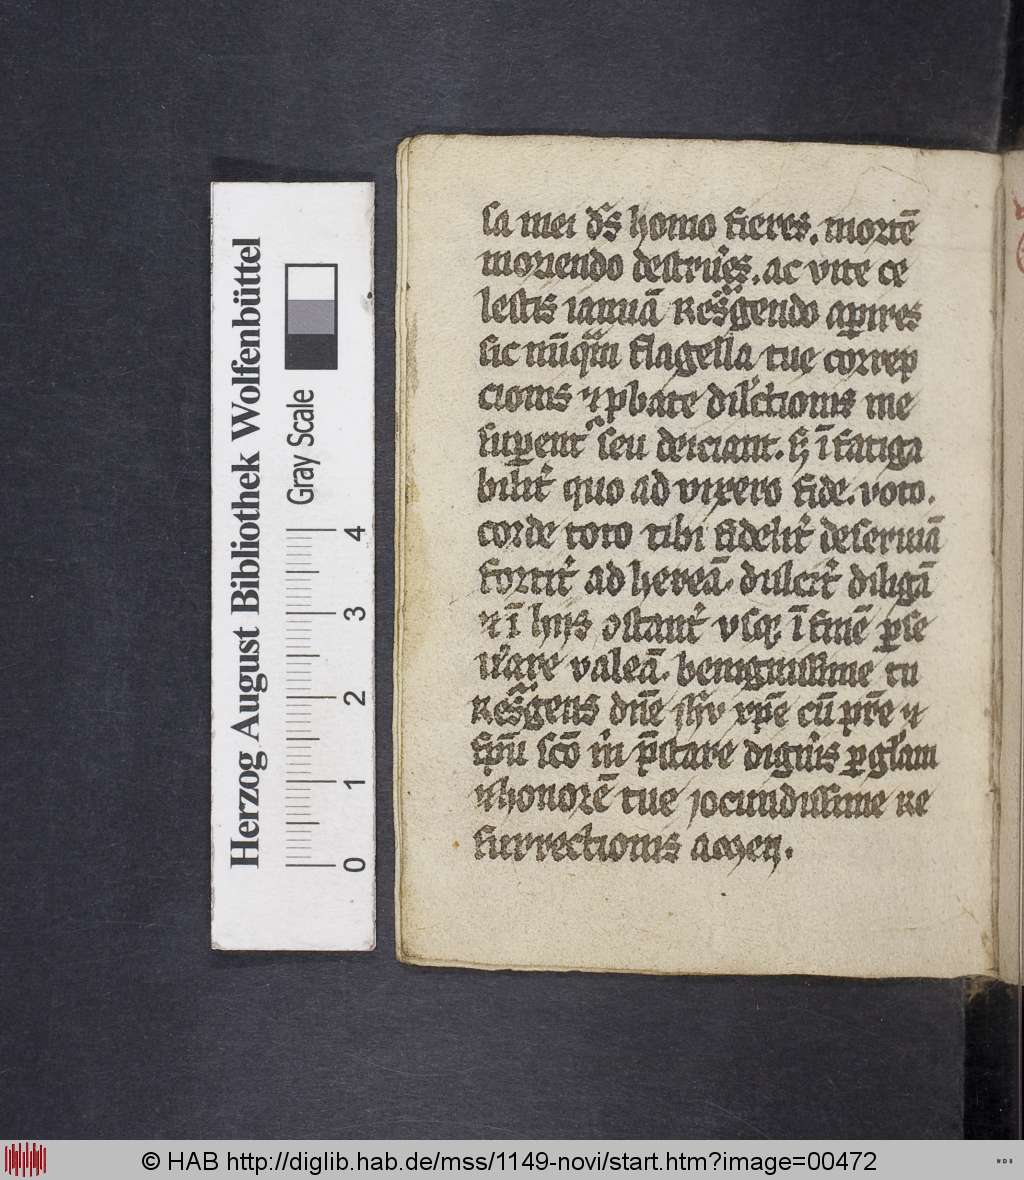 sa mei ds̄ homo fieres. mortē
moriendo destrues. ac vite ce
lestis ianuā Resgendo aꝑires
sic nūqm flagella tue correp
cionis ⁊ ꝓbate dilctionis me
suꝑent seu deiciant. sꝫ ī fatiga
bilit͛ quo ad vixero fide. voto.
corde toto tibi fidelit͛ deseruiā
fortit͛ ad hereā. dulcit͛ diligā
⁊ ī hijs ꝯstant͛ vsqꝫ ī finē ꝑse
u͛are valeā. benignissime tu
Resgens dn̄e jhū xp̄e cū pr̄e ⁊
spū scō m̄ p̄stare digneris ꝑ glam
⁊ honorē tue jocundissime Re
surrectionis amen.
Herzog August Bibliothek Wolfenbüttel
Gray Scale
0 1 2 3 4
© HAB http://diglib.hab.de/mss/1149-novi/start.htm?image=00472